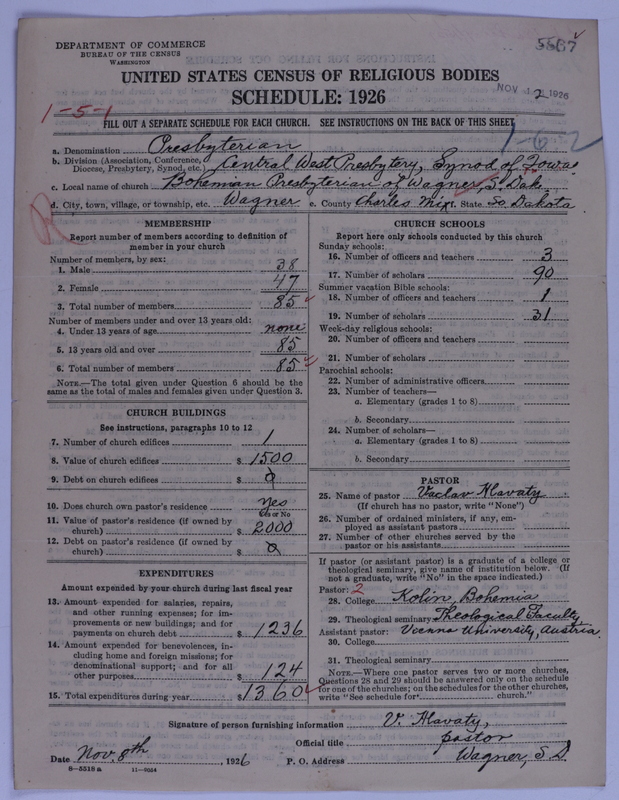 DEPARTMENT OF COMMERCE
BUREAU OF THE CENSUS
WASHINGTON
5587
NOV 12 1926
UNITED STATES CENSUS OF RELIGIOUS BODIES
SCHEDULE: 1926
1-5-1
FILL OUT A SEPARATE SCHEDULE FOR EACH CHURCH. SEE INSTRUCTIONS ON THE BACK OF THIS SHEET
1-6-2
a. Denomination Presbyterian
b. Division (Association, Conference, Diocese, Presbytery, Synod, etc.) Central West Presbytery, Synod of Iowa
c. Local name of church Bohemian Presbyterian of Wagner, S. Dak.
d. City, town, village, or township, etc. Wagner e. County Charles Mix f. State So Dakota
R
MEMBERSHIP
Report number of members according to definition of
member in your church
Number of members, by sex:
1. Male 38
2. Female 47
3. Total number of members 85
Number of members under and over 13 years old:
4. Under 13 years of age none
5. 13 years old and over 85
6. Total number of members 85
NOTE.—The total given under Question 6 should be the
same as the total of males and females given under Question 3.
CHURCH BUILDINGS
See instructions, paragraphs 10 to 12
7. Number of church edifices 1
8. Value of church edifices $ 1500
9. Debt on church edifices $ 0
10. Does church own pastor's residence yes
Yes or No
11. Value of pastor's residence (if owned by
church) $ 2000
12. Debt on pastor's residence (if owned by
church) $ 0
EXPENDITURES
Amount expended by your church during last fiscal year
13. Amount expended for salaries, repairs,
and other running expenses; for im-
provements or new buildings; and for
payments on church debt $ 1236
14. Amount expended for benevolences, in-
cluding home and foreign missions; for
denominational support; and for all
other purposes $ 124
15. Total expenditures during year $ 1360
CHURCH SCHOOLS
Report here only schools conducted by this church
Sunday schools:
16. Number of officers and teachers 3
17. Number of scholars 90
Summer vacation Bible schools:
18. Number of officers and teachers 1
19. Number of scholars 31
Week-day religious schools:
20. Number of officers and teachers
21. Number of scholars
Parochial schools:
22. Number of administrative officers
23. Number of teachers—
a. Elementary (grades 1 to 8)
b. Secondary
24. Number of scholars—
a. Elementary (grades 1 to 8)
b. Secondary
PASTOR
25. Name of pastor Vaclav Hlavaty
(If church has no pastor, write "None")
26. Number of ordained ministers, if any, em-
ployed as assistant pastors
27. Number of other churches served by the
pastor or his assistants
If pastor (or assistant pastor) is a graduate of a college or
theological seminary, give name of institution below. (If
not a graduate, write "No" in the space indicated.)
Pastor: 2
28. College Kolin, Bohemia
29. Theological seminary Theological Faculty
Assistant pastor: Vienna University, Austria.
30. College
31. Theological seminary
NOTE.—Where one pastor serves two or more churches,
Questions 28 and 29 should be answered only on the schedule
for one of the churches; on the schedules for the other churches,
write "See schedule for church."
Signature of person furnishing information V. Hlavaty,
Official title pastor
Date Nov. 8th, 1926 P. O. Address Wagner, S.D.
8—5518 a 11—9064